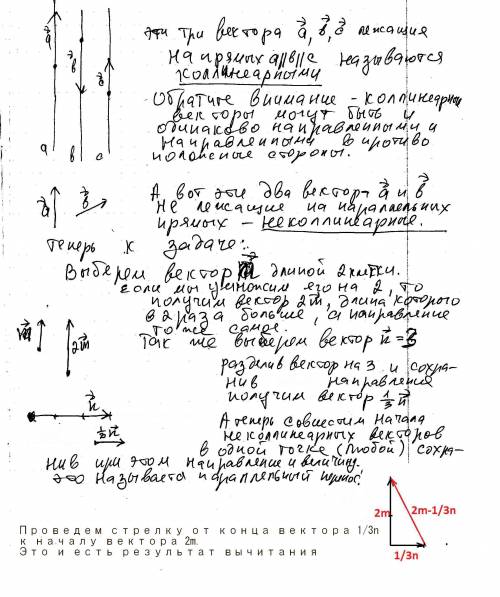 эти три вектора a, b, c лежащие
на прямых a||b||c называются
коллинеарными
Обратите внимание - коллинеарные
векторы могут быть и
одинаково направленными и
направленными в противо
положные стороны.
a
b
c
a b c
А вот эти два вектора a и b
не лежащие на параллельных
прямых - неколлинеарные.
a
b
теперь к задаче:
Выберем вектор m длиной 2 клетки.
Если мы умножим его на 2, то
получим вектор 2m, длина которого
в 2 раза больше, а направление
то же самое.
m
2m
Так же выберем вектор n = 3
разделив вектор на 3 и сохра-
нив направление
получим вектор 1/3 n
n
1/3 n
А теперь совместим начала
неколлинеарных векторов
в одной точке (любой) сохра-
нив при этом направление и величину.
это называется параллельный перенос
Проведем стрелку от конца вектора 1/3n
к началу вектора 2m.
Это и есть результат вычитания
2m
2m-1/3n
1/3n